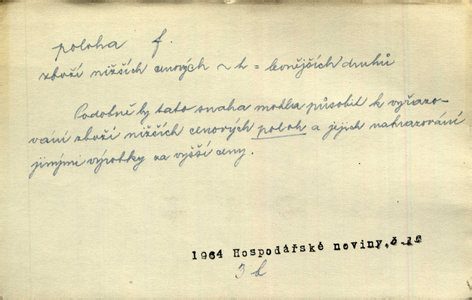 poloha f.
zboží nižších cenových ~h = levnějších druhů
Podobně by tato snaha mohla působit k vyřazo-
vání zboží nižších cenových poloh a jejich nahrazování
jinými výrobky za vyšší ceny.
1964 Hospodářské noviny, č.